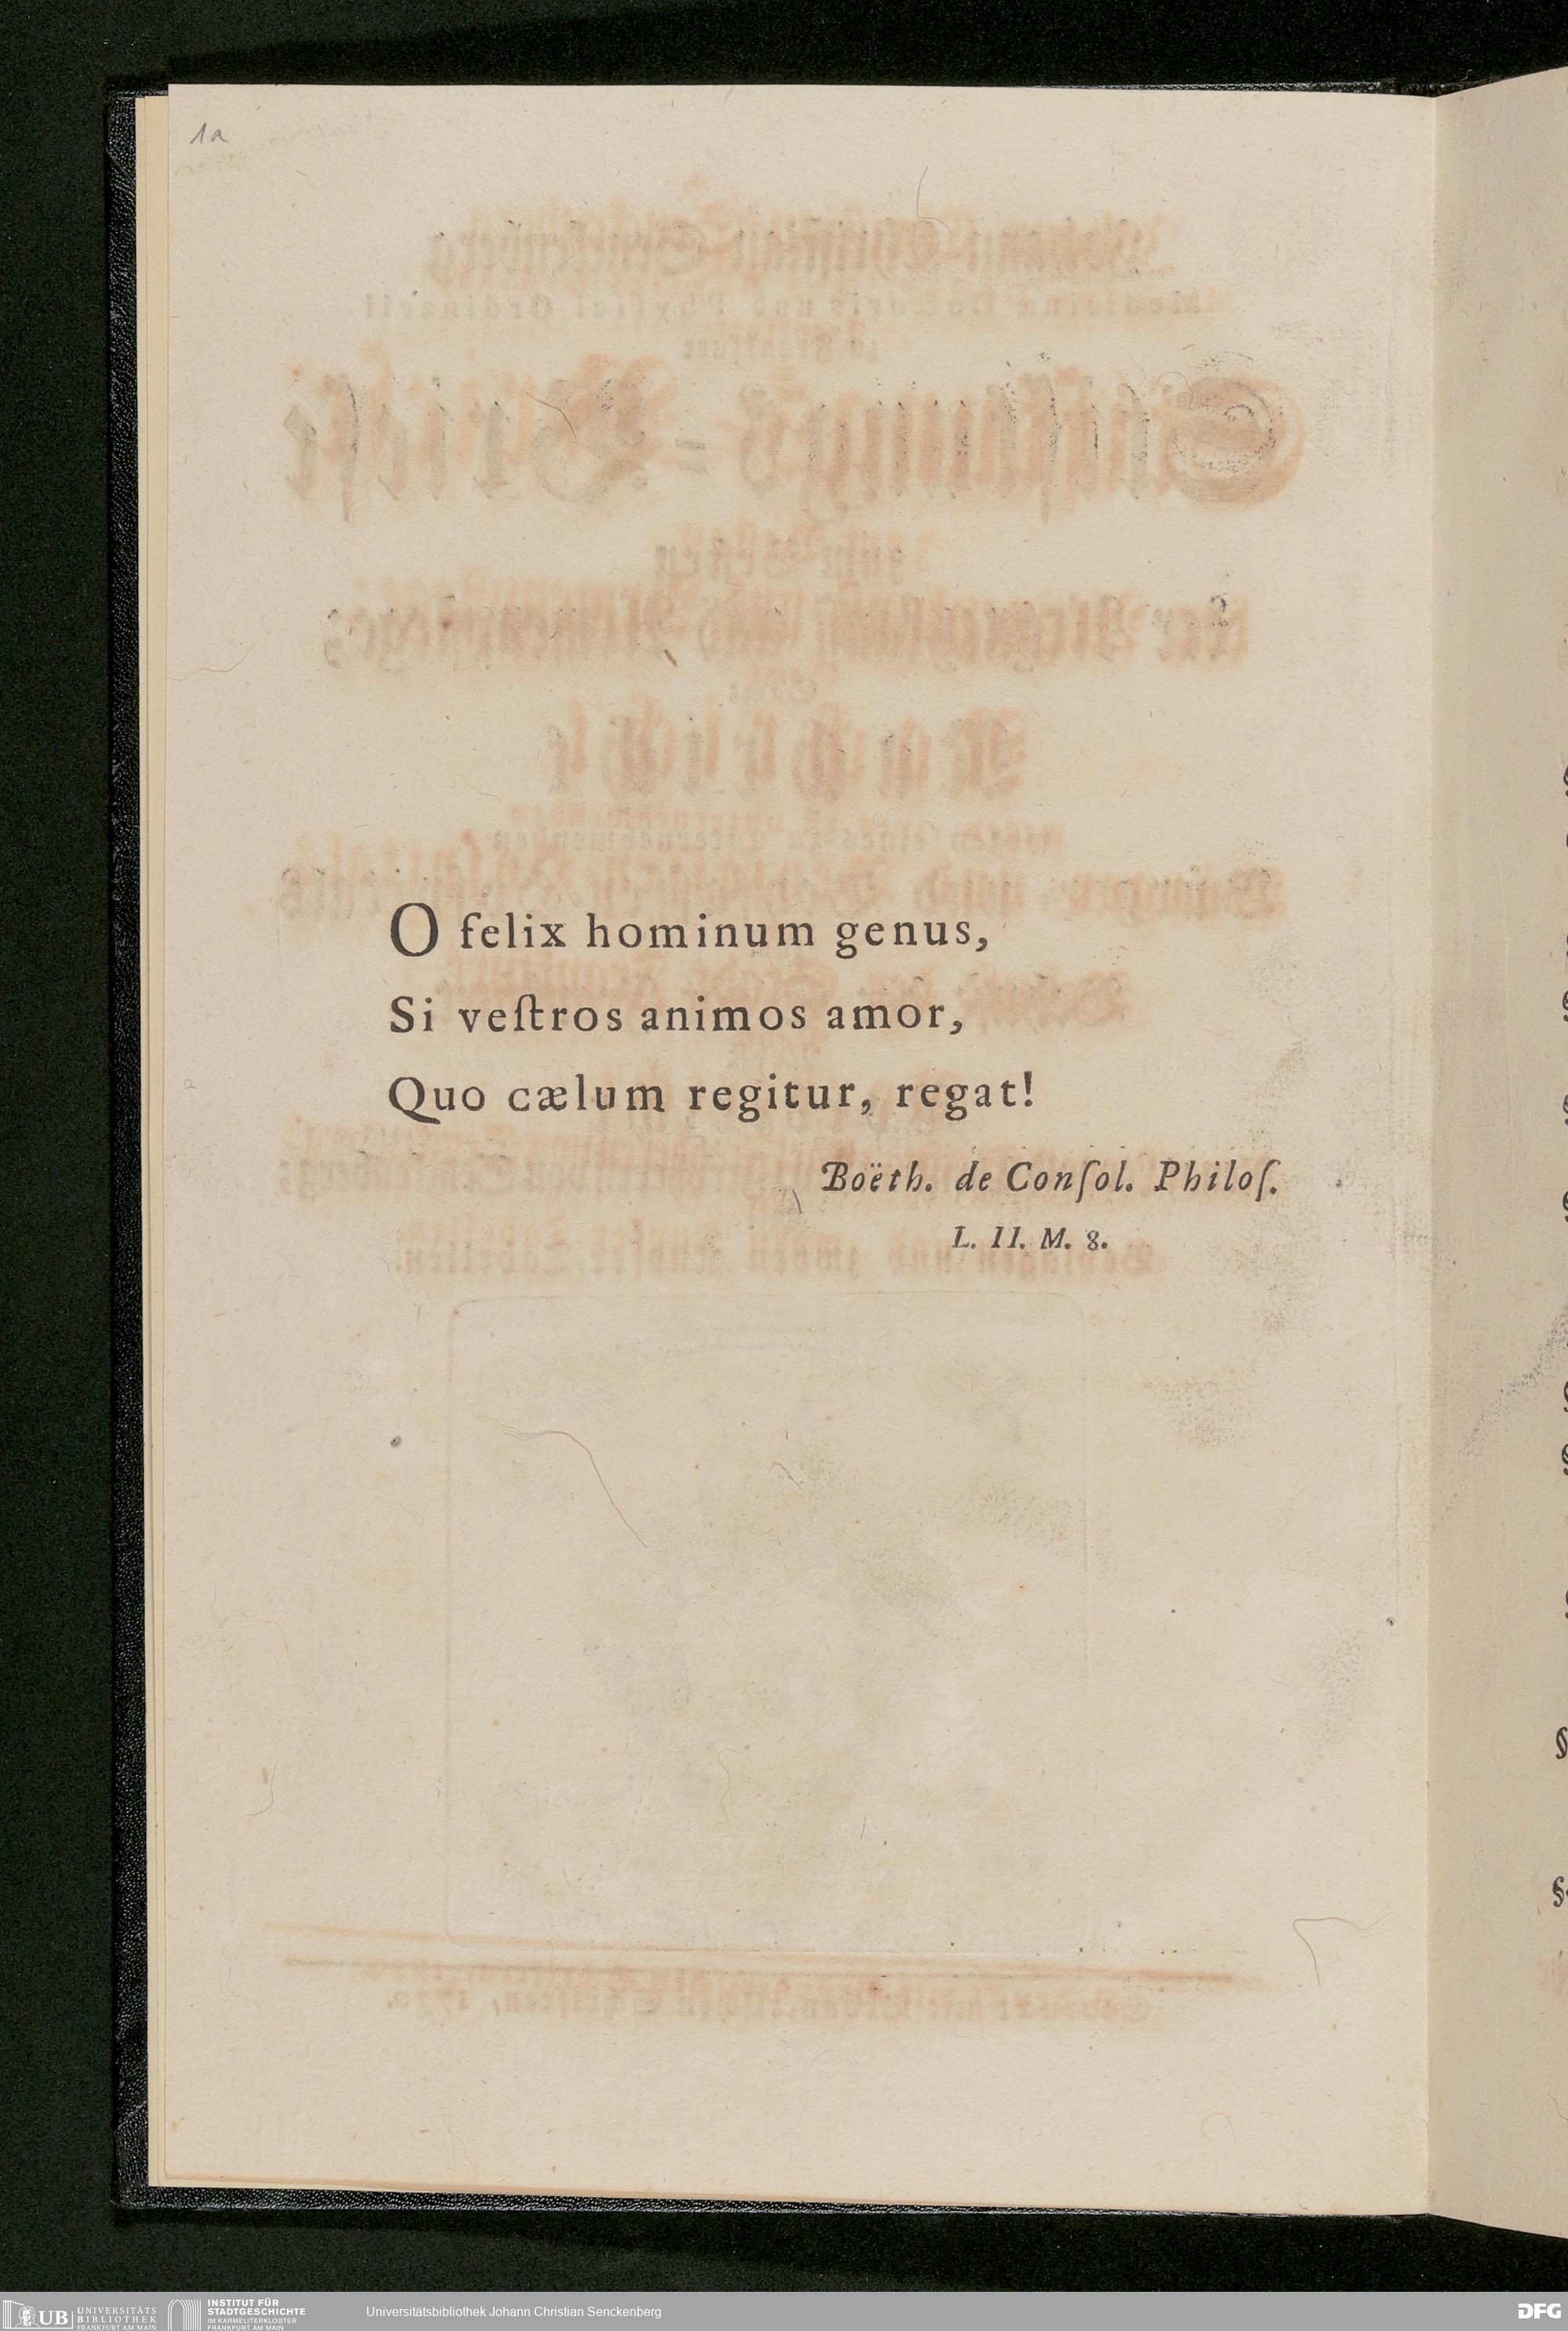 1a
O felix hominum genus,
Si veſtros animos amor,
Quo cælum regitur, regat!
Boëth. de Conſol. Philoſ.
L. II. M. 8.
UB UNIVERSITÄTS
BIBLIOTHEK
FRANKFURT AM MAIN
INSTITUT FÜR
STADTGESCHICHTE
IM KARMELITERKLOSTER
FRANKFURT AM MAIN
Universitätsbibliothek Johann Christian Senckenberg
DFG